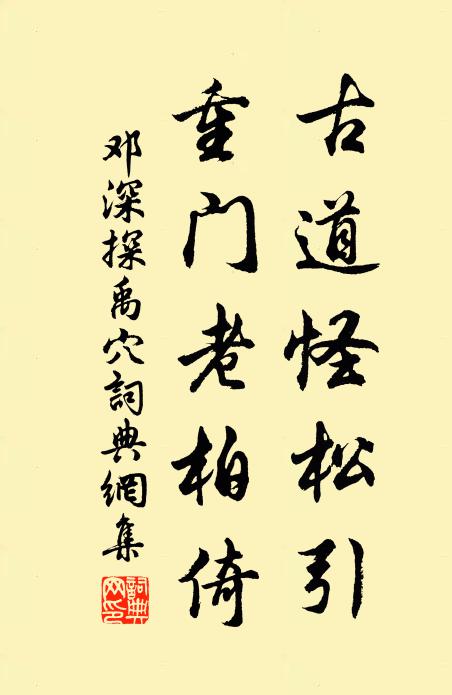 古道怪松引
重门老柏倚
邓深探禹穴詞典網集
詞典网印